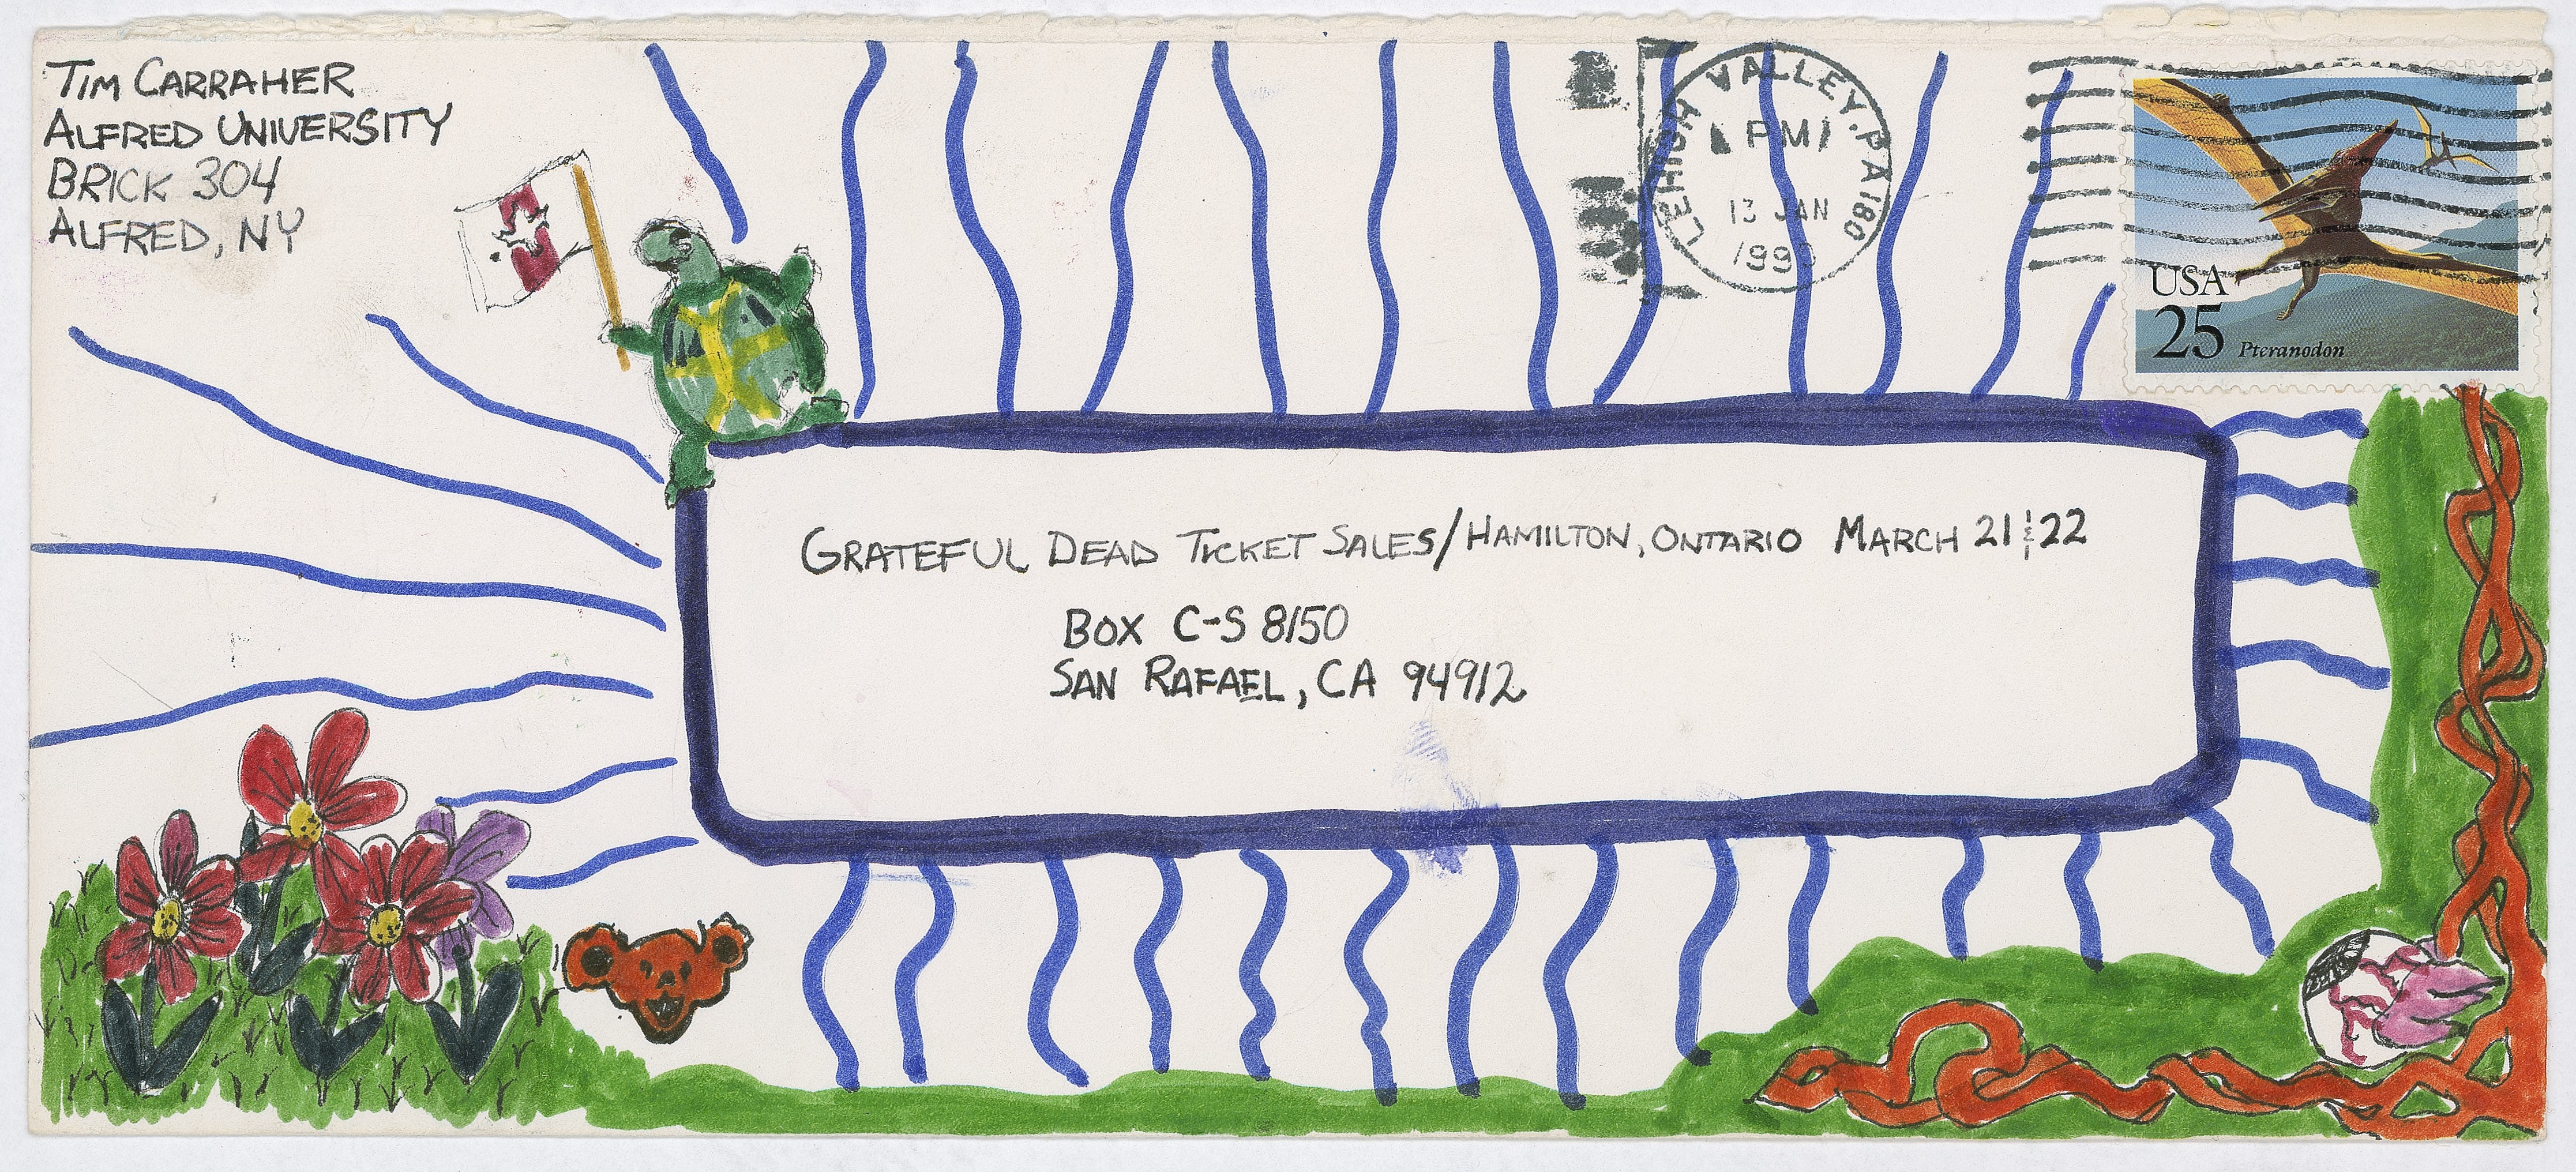 TIM CARRAHER
ALFRED UNIVERSITY
BRICK 304
ALFRED, NY
LEHIGH VALLEY, PA 180
PM
13 JAN
USA
25 Pteranodon
GRATEFUL DEAD TICKET SALES/HAMILTON, ONTARIO MARCH 21 & 22
BOX C-S 8150
SAN RAFAEL, CA 94912